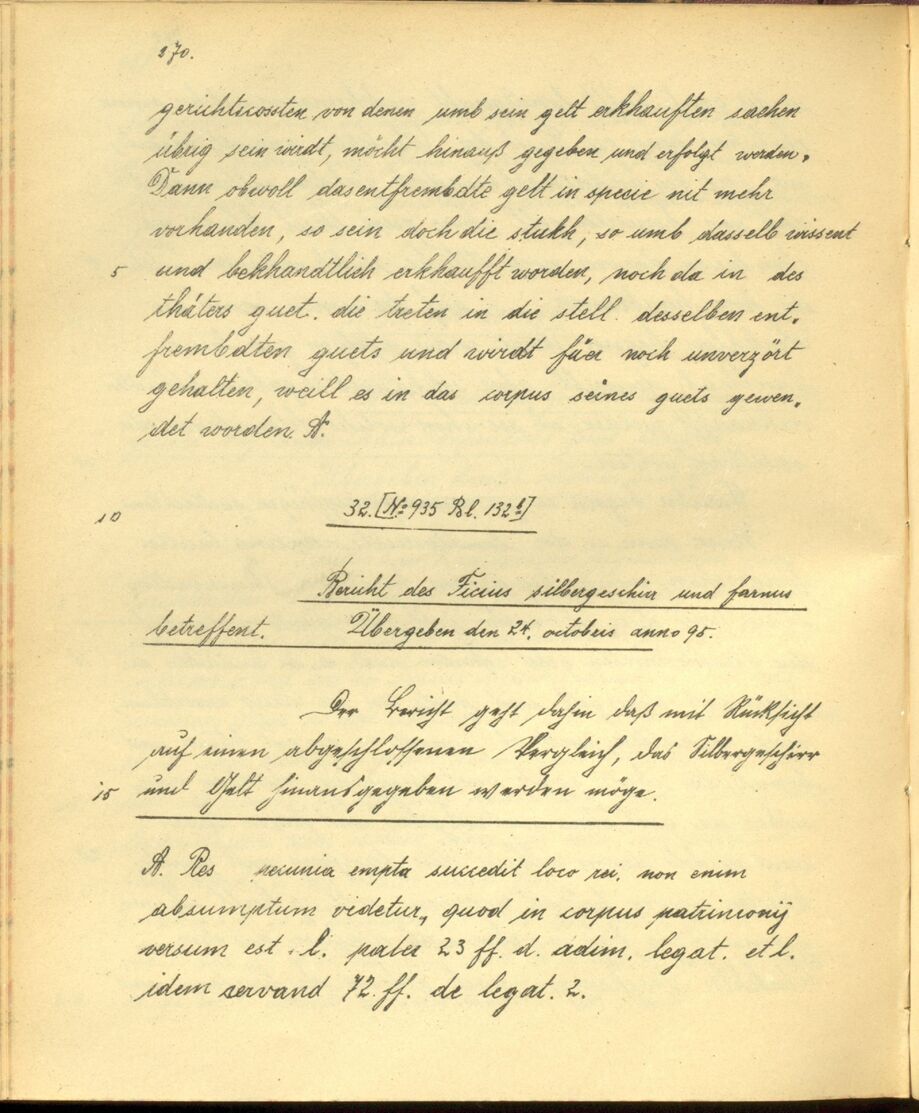 270.
gerichtscossten von denen umb sein gelt erkhauften sachen
übrig sein wirdt, möcht hinauß gegeben und erfolgt werden.
Dann obwoll das entfrembdte gelt in specie nit mehr
vorhanden, so sein doch die stukh, so umb dasselb wissent
5 und bekhandtlich erkhaufft worden, noch da in des
thäters guet. die treten in die stell desselben ent,
frembdten guets und wirdt für noch unverzört
gehalten, weill es in das corpus seines guets gewen,
det worden. A.
10 32. [No 935 Bl. 132b]
Bericht des Ficius silbergeschir und farnus
betreffent. Übergeben den 24. octobris anno 95.
Der Bericht geht dahin daß mit Rücksicht
auf einen abgeschlossenen Vergleich, das Silbergeschirr
15 und Gelt hinausgegeben werden möge.
A. Res pecunia empta succedit loco rei. non enim
absumptum videtur, quod in corpus patrimonij
versum est. l. pater 23 ff. d. adim. legat. et l.
idem servand 72 ff. de legat. 2.